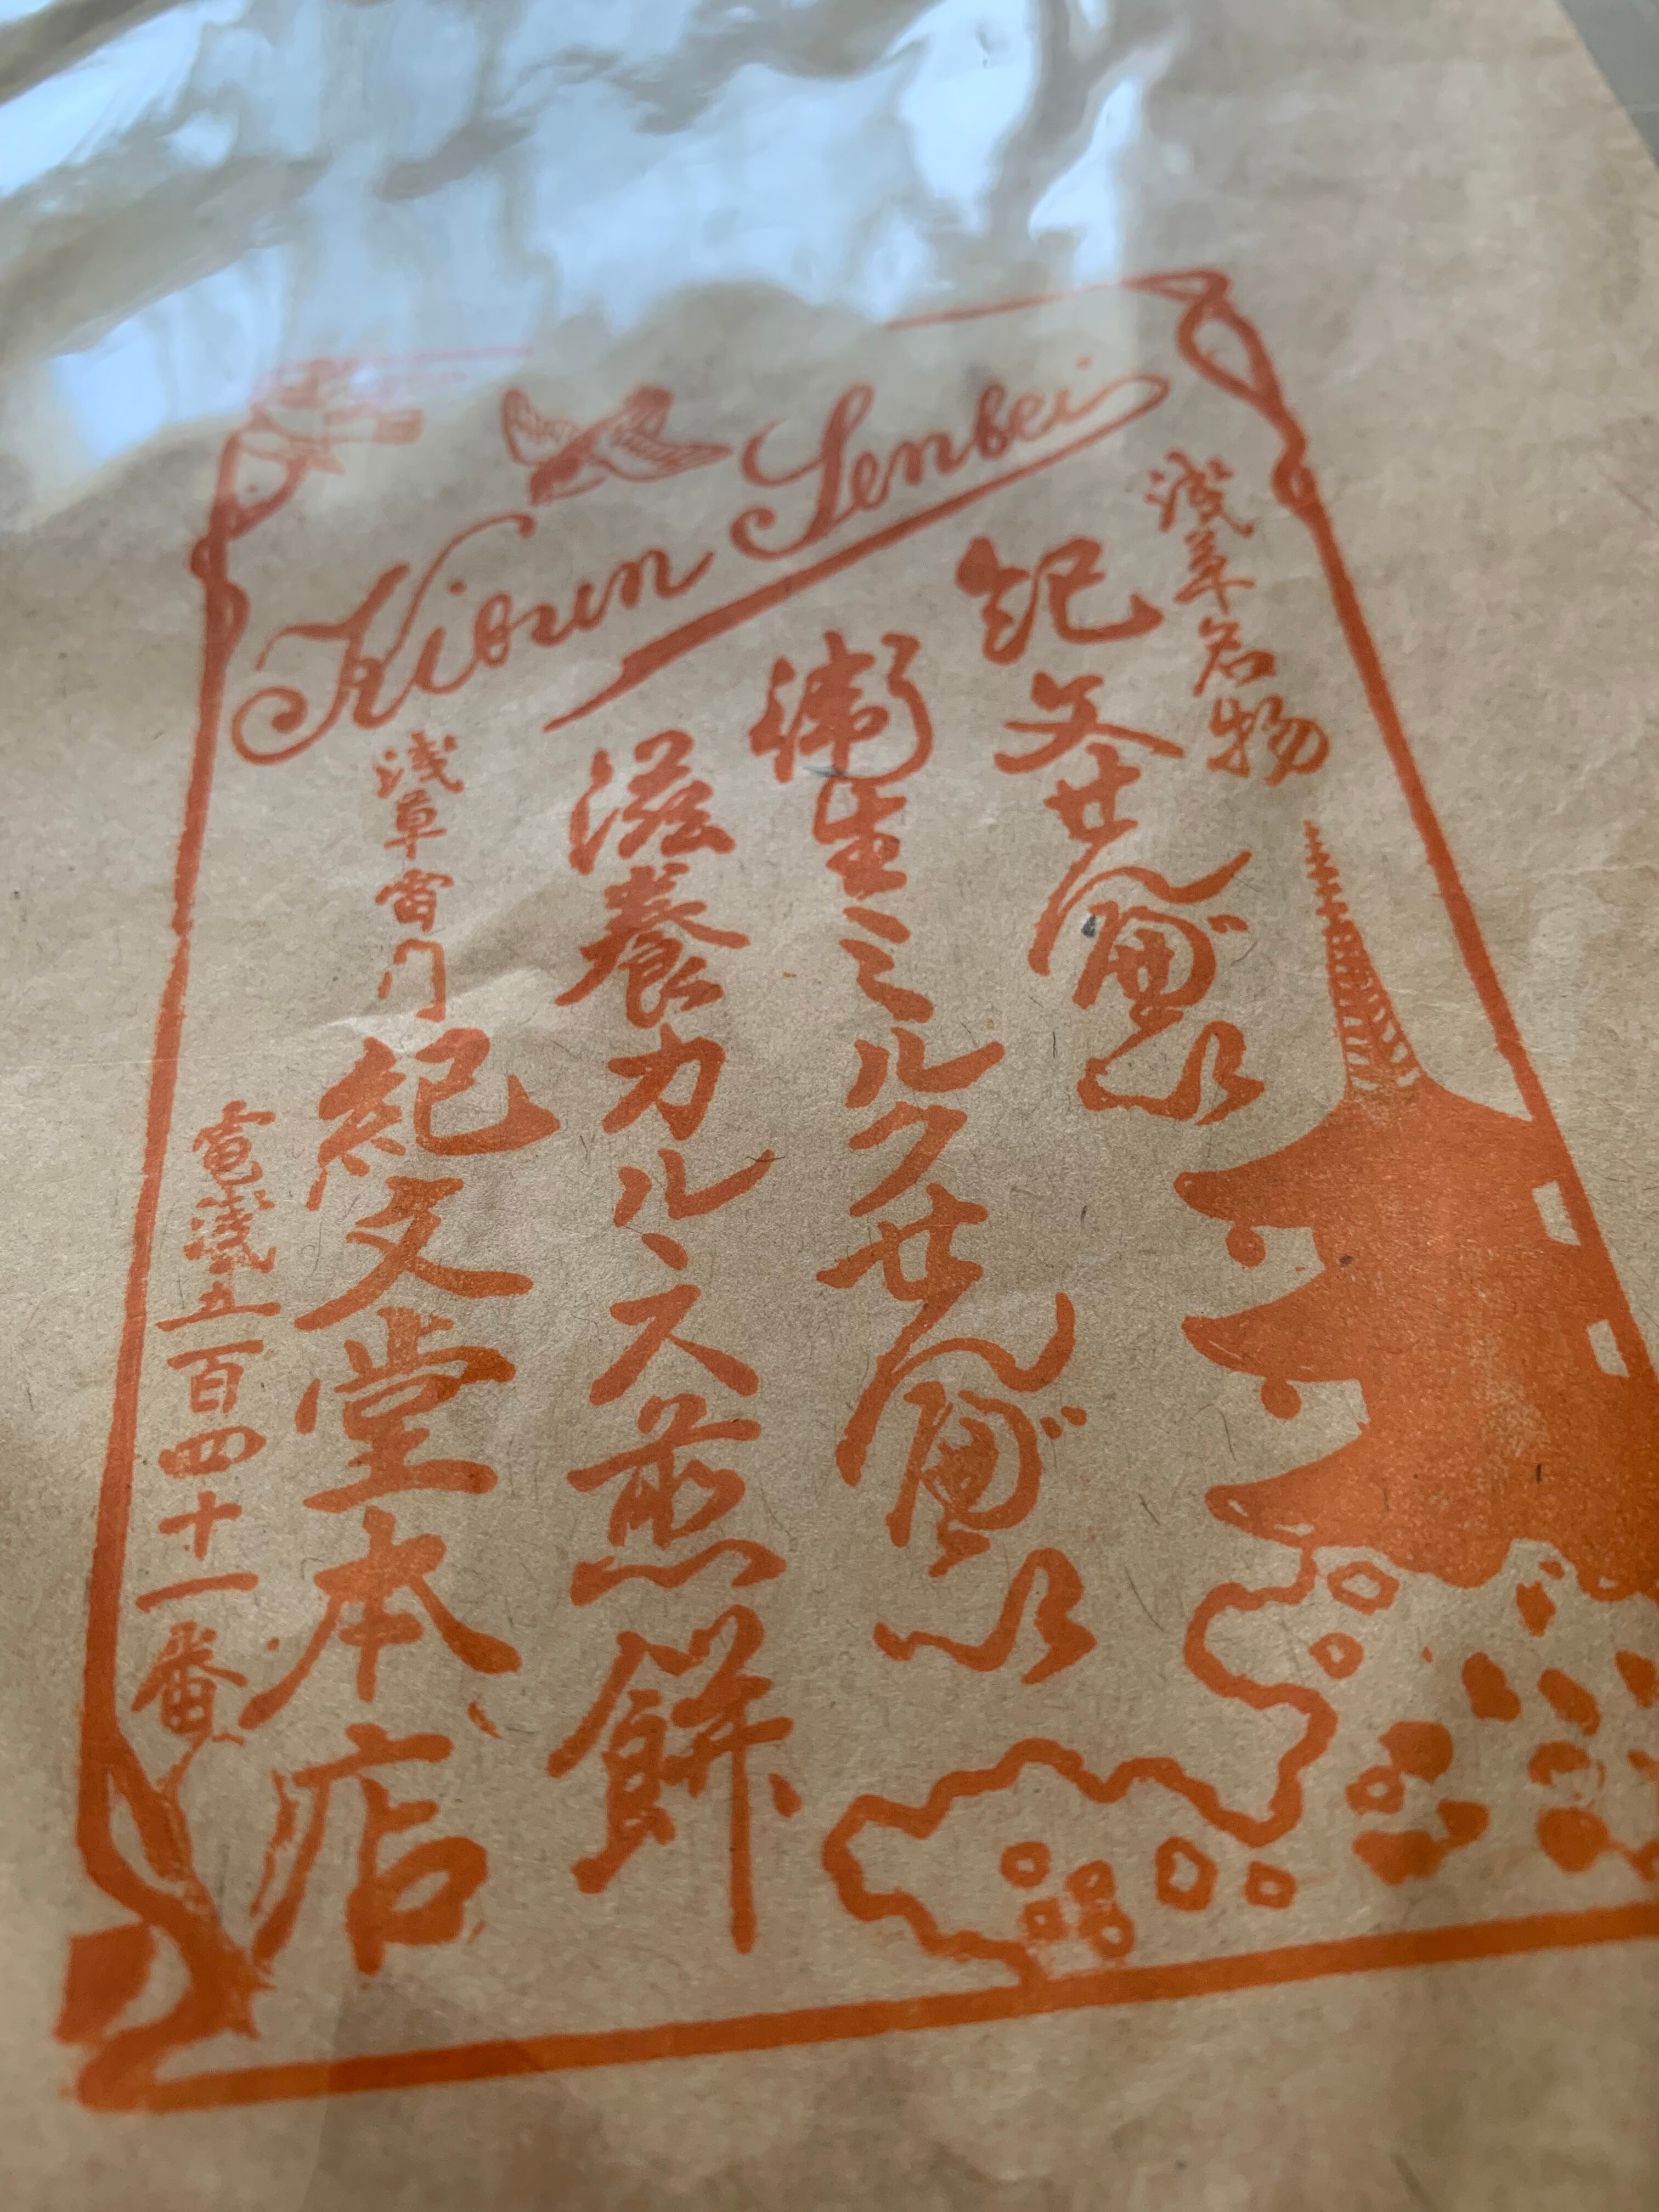 Kibun Senbei
浅草名物
紀文せんべい
衛生ミルクせんべい
滋養カルヽス煎餅
浅草雷門 紀文堂本店
電淺五百四十一番